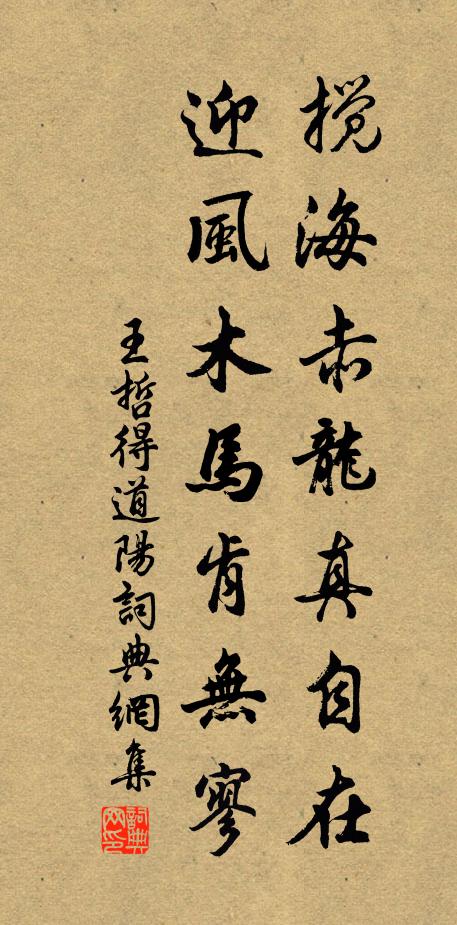 攪海赤龍真自在
迎風木馬肯無寥
王哲得道陽詞典網集
詞典网印